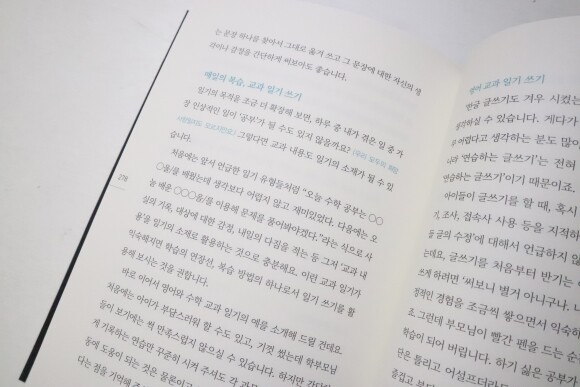 는 문장 하나를 찾아서 그대로 옮겨 쓰고 그 문장에 대한 자신의 생
각이나 감정을 간단하게 써보아도 좋습니다.
매일의 복습, 교과 일기 쓰기
일기의 목적을 조금 더 확장해 보면, 하루 중 내가 겪은 일 중 가
장 인상적인 일이 '공부'가 될 수도 있지 않을까요?
그렇다면 교과 내용도 일기의 소재가 될 수 있
습니다.
처음에는 앞서 언급한 일기 유형들처럼 "오늘 수학 공부는 ○○
○을/를 배웠는데 생각보다 어렵지 않고 재미있었다. 다음에는 오
늘 배운 ○○○을/를 이용해 문제를 풀어봐야겠다."라는 식으로 사
실의 기록, 대상에 대한 감정, 내일의 다짐을 적는 등 그저 '교과 내
용'을 일기의 소재로 활용하는 것으로 충분해요. 이런 교과 일기가
익숙해지면 학습의 연장선, 복습 방법의 하나로서 일기 쓰기를 활
용해 보시는 것을 권합니다.
바로 이어서 영어와 수학 교과 일기의 예를 소개해 드릴 건데요.
처음에는 아이가 부담스러워 할 수도 있고, 기껏 썼는데 학부모님
들이 보기에는 썩 만족스럽지 않으실 수 있습니다. 하지만 간단하
게 기록하는 연습만 꾸준히 시켜 주셔도 각 과목
들에 도움이 되는 것은 물론이고
다는 점을 기억해 주
278
영어 교과 일기 쓰기
한글 글쓰기도 겨우 시켰는
각하실 수 있습니다. 게다가
우 어렵다고 생각하는 분도 많이
니라 '연습하는 글쓰기'는 전혀
하는 글쓰기'이기 때문이죠.
아이들이 글쓰기를 할 때, 혹시
기, 조사, 접속사 사용 등을 지적하
든 글의 수정'에 대해서 언급하지 않
는데요, 글쓰기를 처음부터 반기는 아
쓰게 하려면 '써보니 별거 아니구나.
정적인 경험을 조금씩 쌓으면서 익숙하
요. 그런데 부모님이 빨간 펜을 드는 순
학습이 되어 버립니다. 하기 싫은 공부가
단은 틀리고 어설프더라